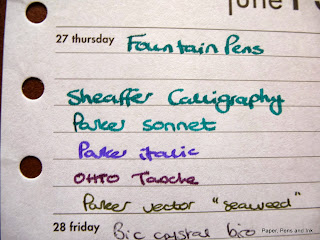 June
27 thursday Fountain Pens
Sheaffer Calligraphy
Parker sonnet
Parker italic
OHTO Tasche
Parker vector "seaweed"
28 friday Bic crystal biro
Paper, Pens and Ink